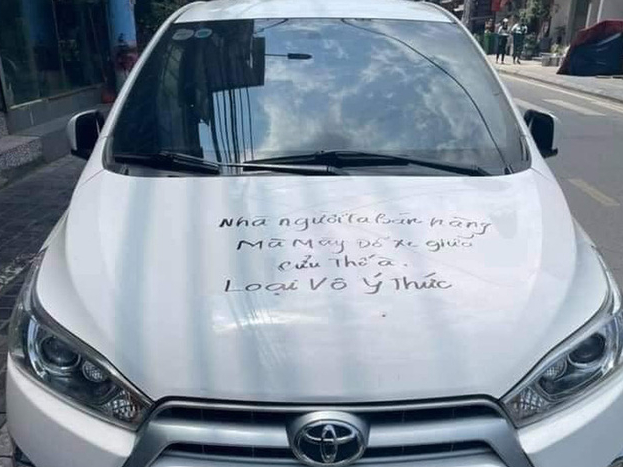 Nhà người ta bán hàng
Mà Mày Đổ xe giữa
cửu Thế à.
Loại Vô Ý Thức